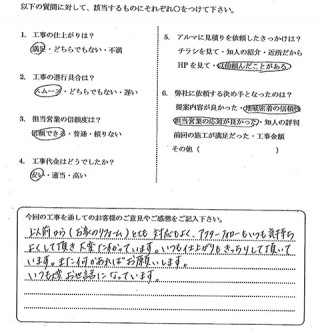 以下の質問に対して、該当するものにそれぞれ○をつけて下さい。
1. 工事の仕上がりは？
満足・どちらでもない・不満
2. 工事の進行具合は？
スムーズ・どちらでもない・遅い
3. 担当営業の信頼度は？
信頼できる・普通・頼りない
4. 工事代金はどうでしたか？
安い・適当・高い
5. アルマに見積りを依頼したきっかけは？
チラシを見て・知人の紹介・近所だから
HPを見て・以前頼んだことがある
6. 弊社に依頼する決め手となったのは？
提案内容が良かった・地域密着の信頼性
担当営業の応対が良かった・知人の評判
前回の施工が満足だった・工事金額
その他（　　　）
今回の工事を通してのお客様のご意見やご感想をご記入下さい。
以前から(お家のリフォーム)とても 対応もよく、アフターフォローもいつも気持ち
よくして頂き 大変たすかっています。いつも仕上がりも きっちりして頂いて
います。また何かあればお願いします。
いつも大変お世話になっています。